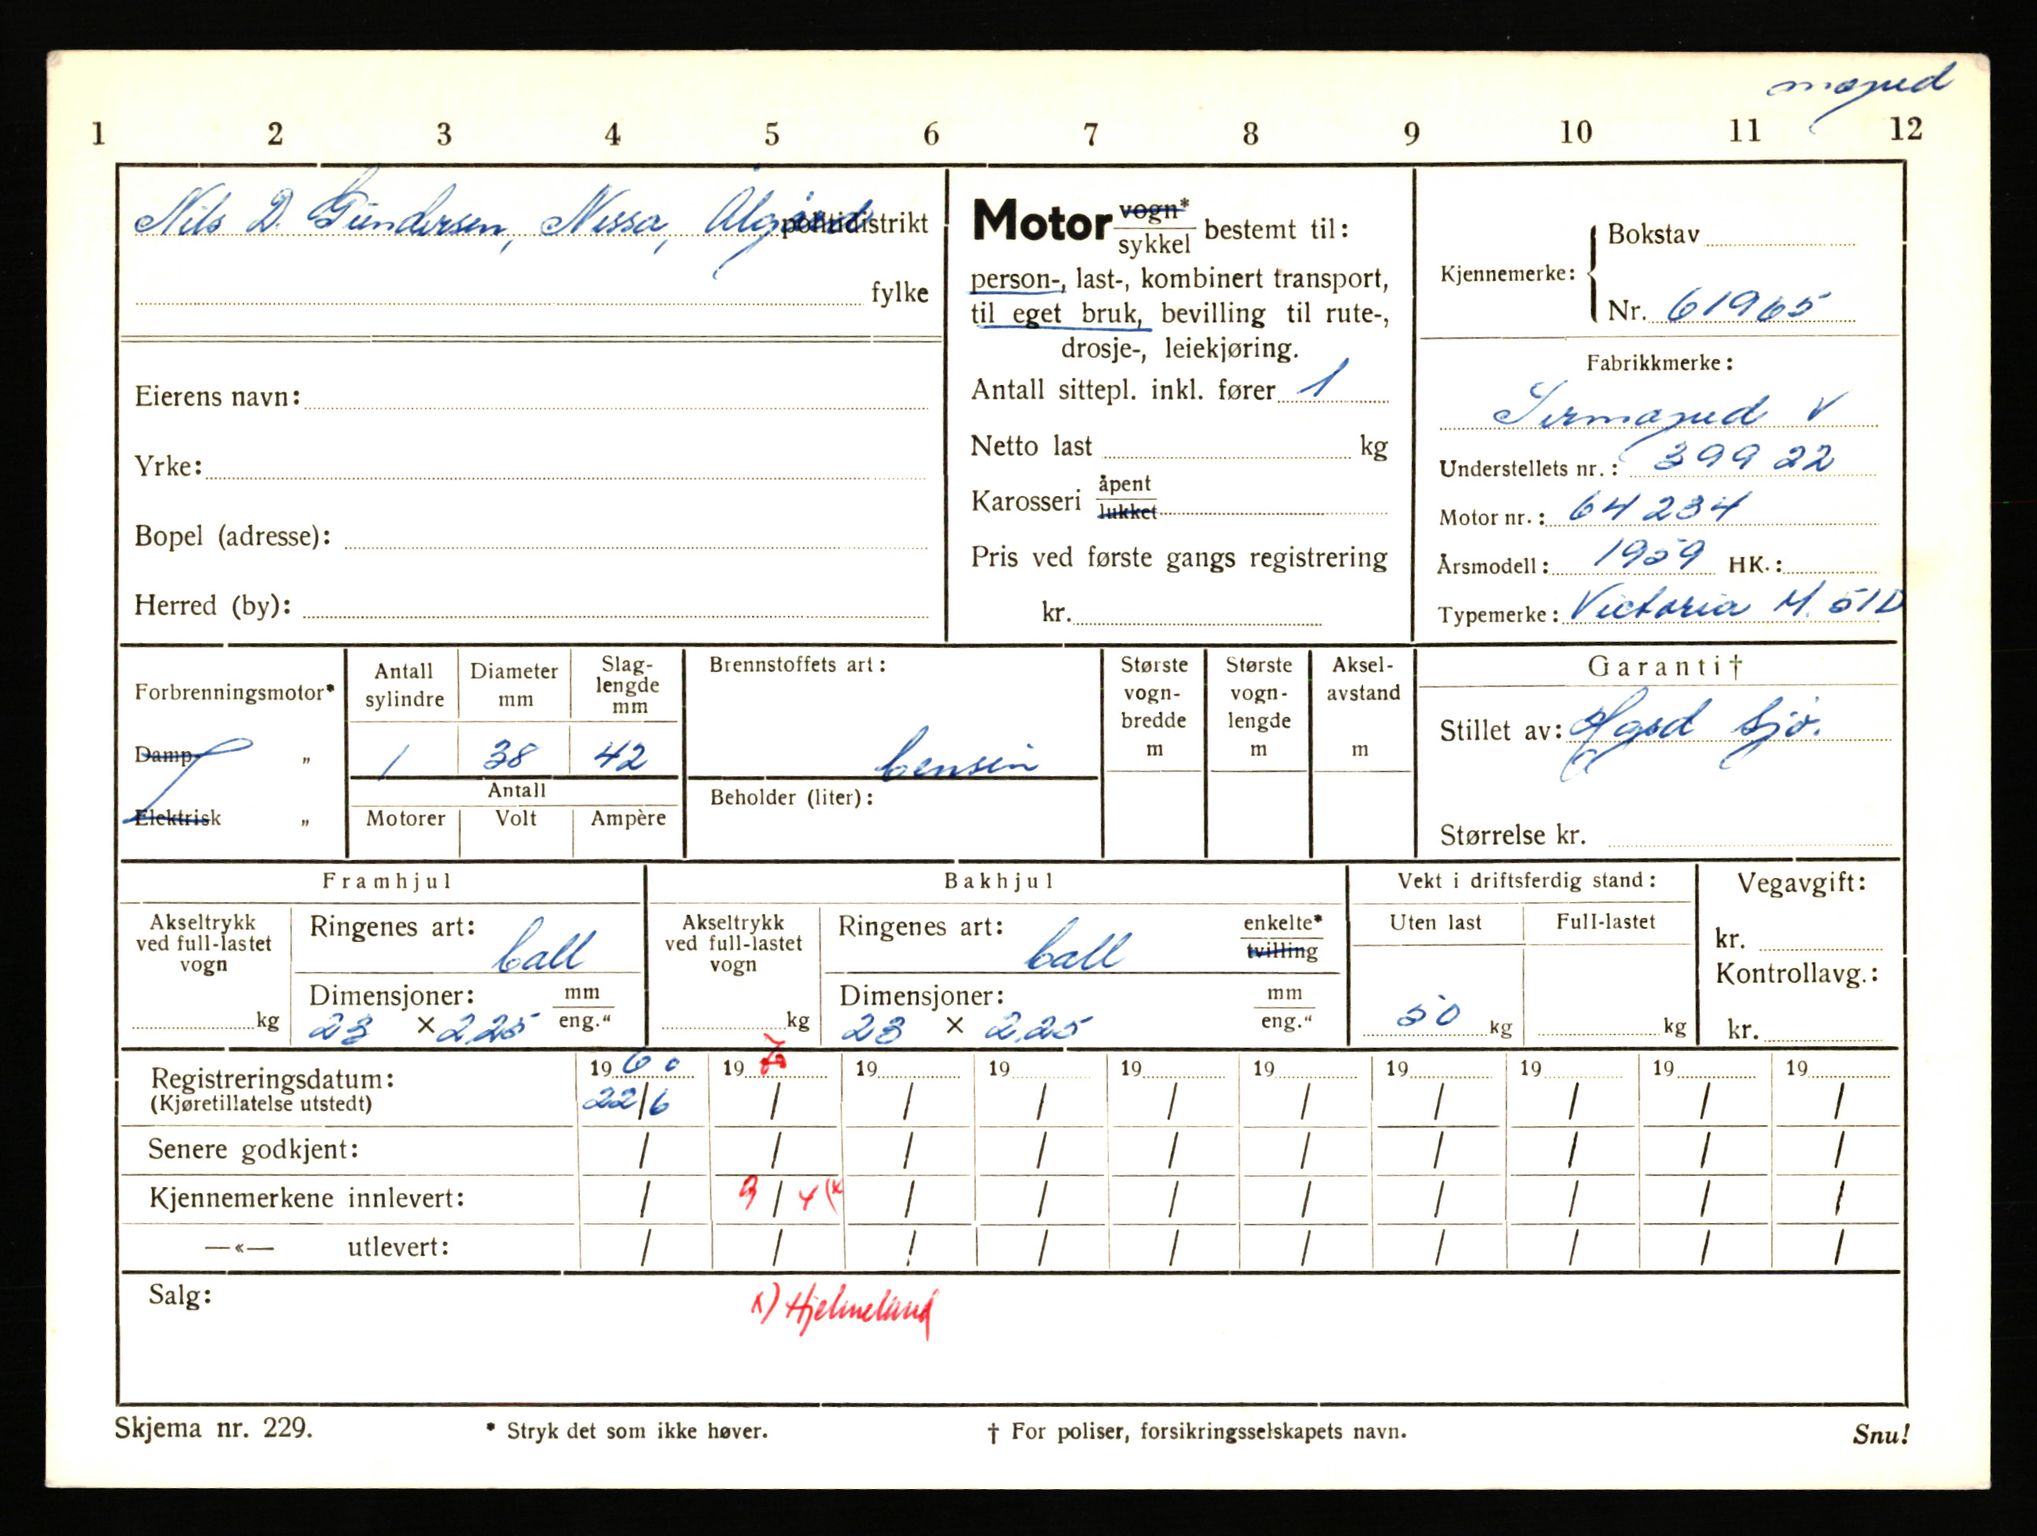 moped
1 2 3 4 5 6 7 8 9 10 11 12
Nils D. Gundersen, Nessa, Ålgård politidistrikt
fylke
Eierens navn:
Yrke:
Bopel (adresse):
Herred (by):
Motor vogn* / sykkel bestemt til:
person-, last-, kombinert transport,
til eget bruk, bevilling til rute-,
drosje-, leiekjøring.
Antall sittepl. inkl. fører 1
Netto last kg
Karosseri åpent / lukket
Pris ved første gangs registrering
kr.
Kjennemerke: Bokstav
Nr. 61965
Fabrikkmerke:
Sirmoped V
Understellets nr.: 39922
Motor nr.: 64234
Årsmodell: 1959 HK.:
Typemerke: Victoria M. 51D
Forbrenningsmotor*
Damp „
Elektrisk „
Antall sylindre
1
Diameter mm
38
Slag-lengde mm
42
Antall
Motorer Volt Ampère
Brennstoffets art:
bensin
Beholder (liter):
Største vogn-bredde m
Største vogn-lengde m
Aksel-avstand m
Garanti†
Stillet av: sjø.
Størrelse kr.
Framhjul
Akseltrykk ved full-lastet vogn
kg
Ringenes art:
ball
Dimensjoner: mm / eng."
23 × 2,25
Bakhjul
Akseltrykk ved full-lastet vogn
kg
Ringenes art: enkelte* / tvilling
ball
Dimensjoner: mm / eng."
23 × 2,25
Vekt i driftsferdig stand:
Uten last Full-lastet
50 kg kg
Vegavgift:
kr.
Kontrollavg.:
kr.
Registreringsdatum: 1960 19 19 19 19 19 19 19 19 19
(Kjøretillatelse utstedt) 22/6 / / / / / / / / /
Senere godkjent: / / / / / / / / / /
Kjennemerkene innlevert: / 9/4 (x / / / / / / / /
—«— utlevert: / / / / / / / / / /
Salg: x) Hjelmeland
Skjema nr. 229. * Stryk det som ikke høver. † For poliser, forsikringsselskapets navn. Snu!